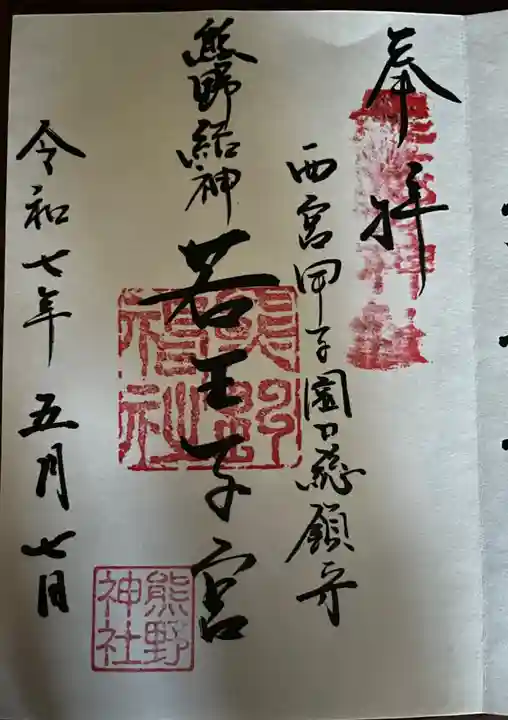 奉拝
西宮甲子園口総鎮守
熊野結神
若王子宮
熊野
神社
令和七年五月七日